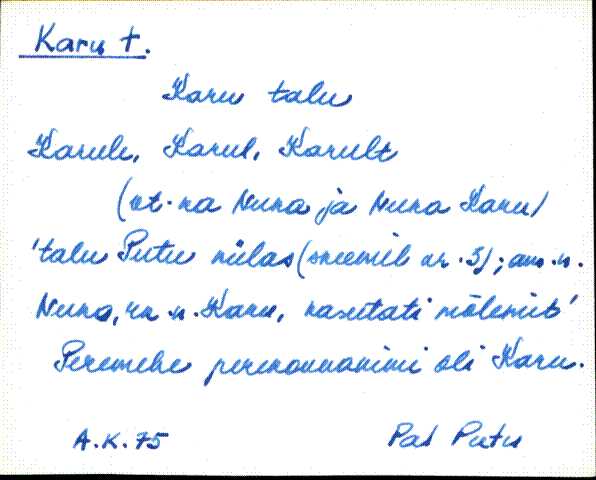 Karu t.
Karu talu
Karule, Karul, Karult
(vt. ka Nuka ja Nuka Karu)
'talu Putu külas (skeemil nr. 3); am. n.
Nuka, rn. n. Karu, kasutati mõlemit'
Peremehe perekonnanimi oli Karu.
A.K. 75
Pal Putu